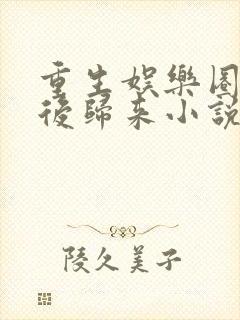 重生娛樂圈
後歸來小說
陵久美子